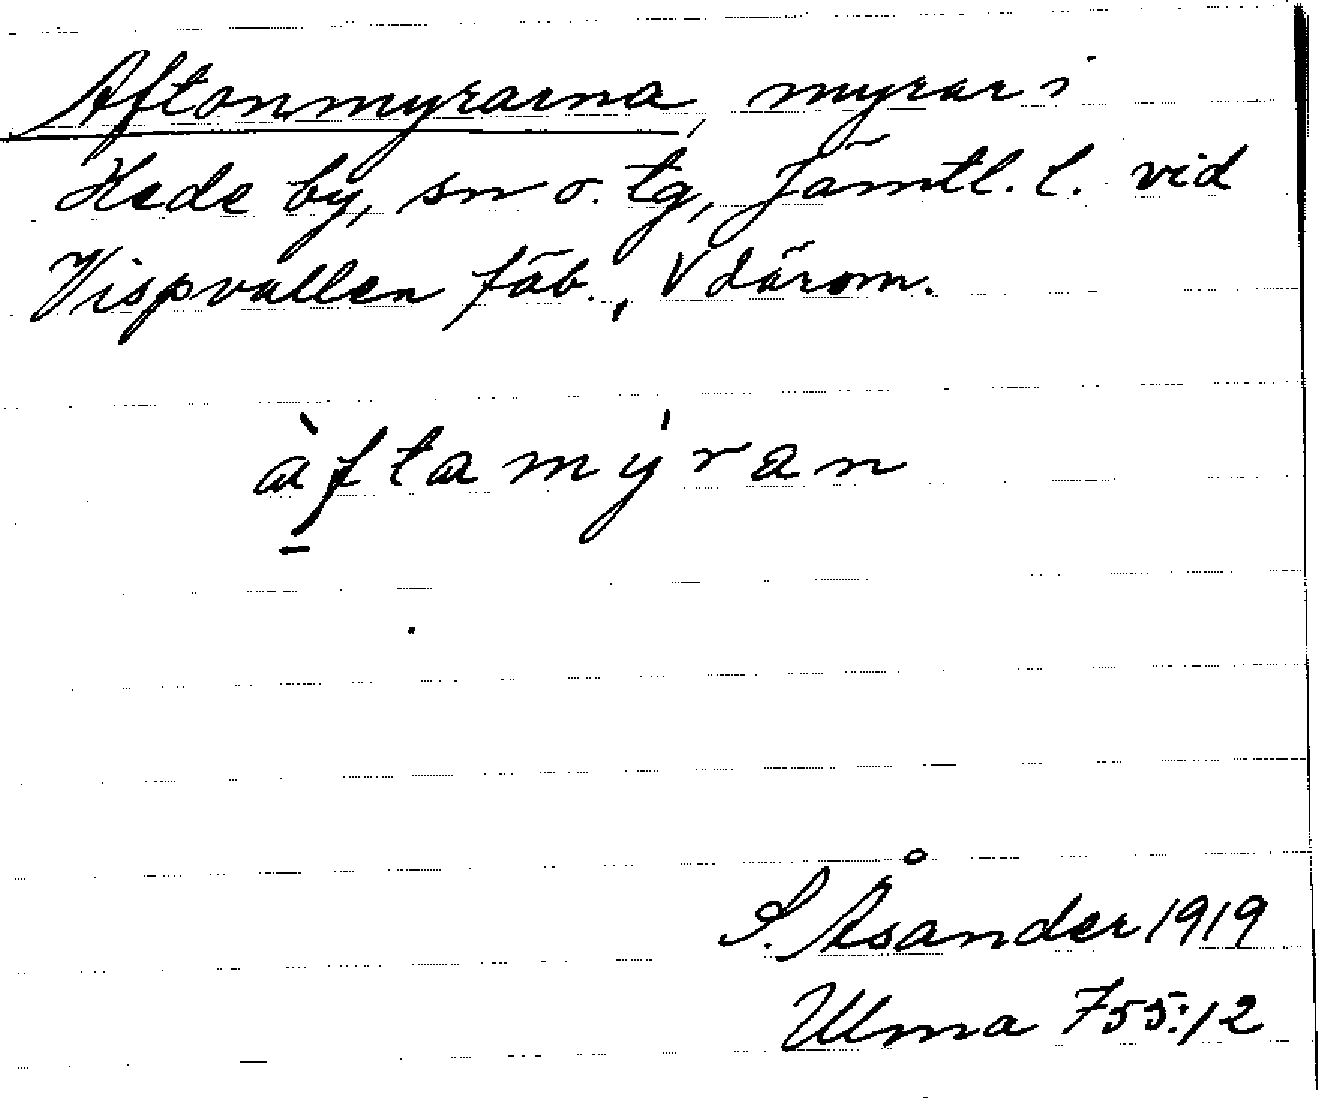 Aftonmyrarna, myrar i
Hede by, sn o. tg, Jämtl. l. vid
Vispvallen fäb., V därom.
àftamýran
S. Åsander 1919
Ulma 755:12